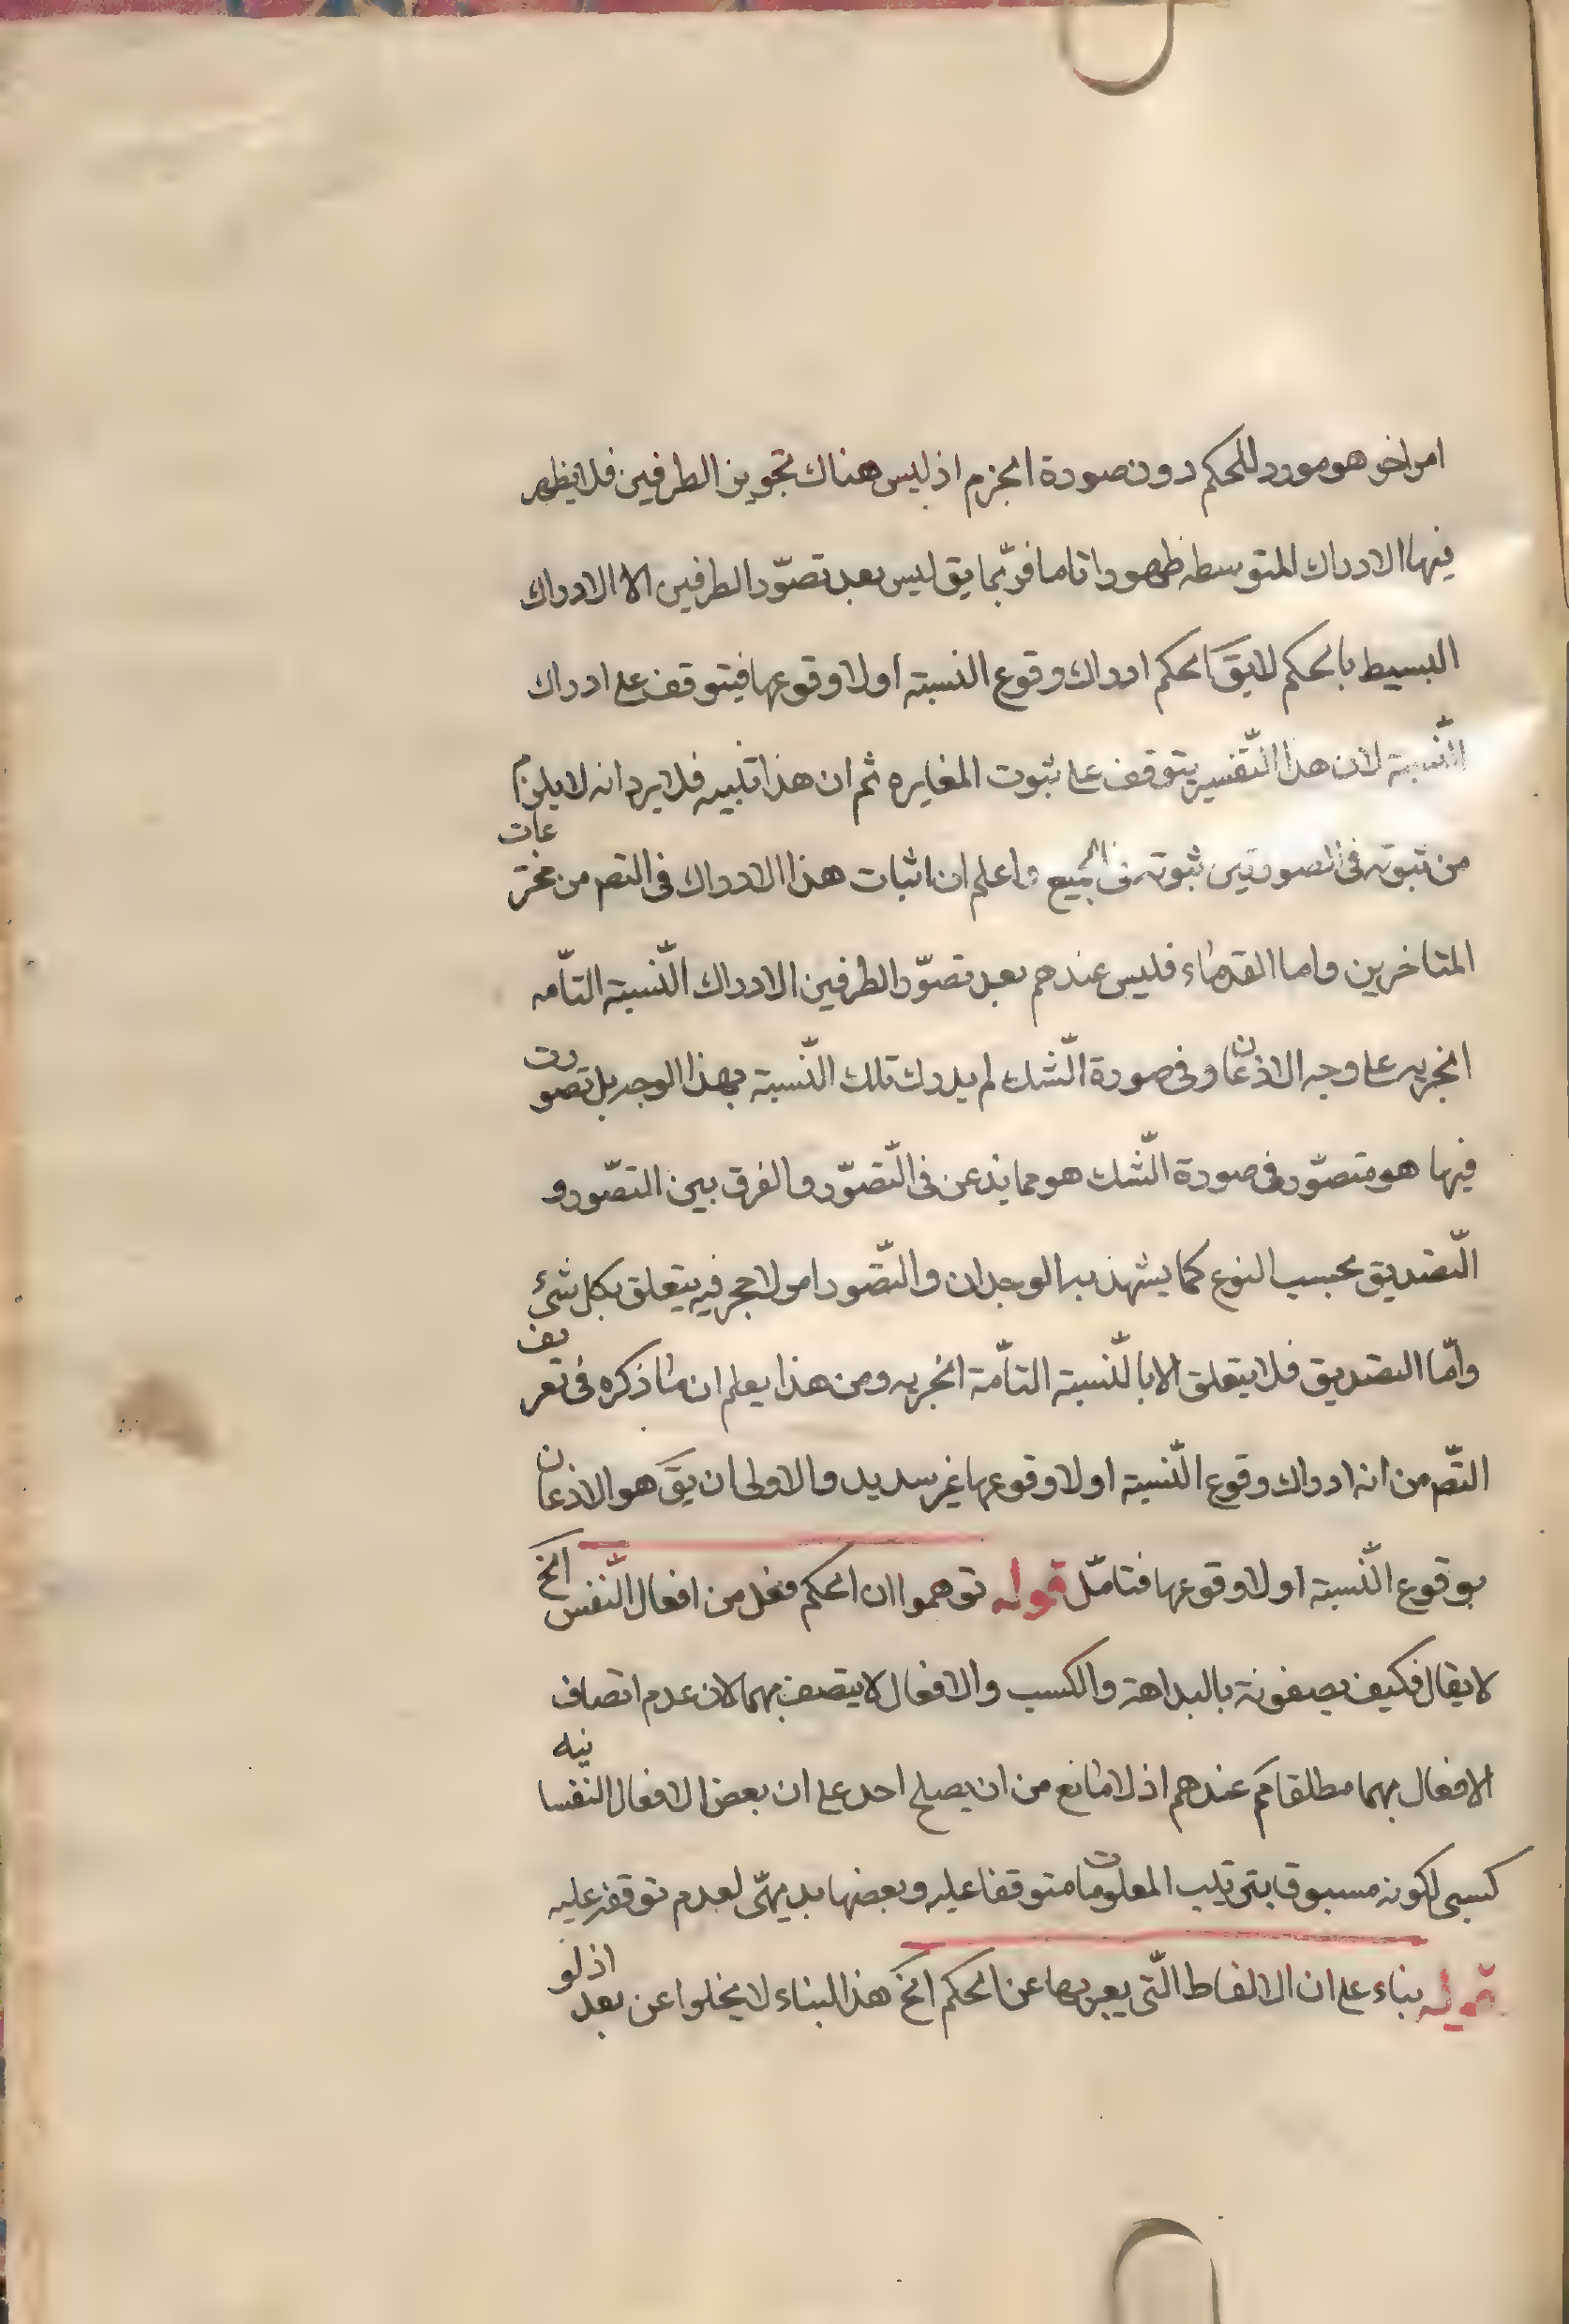 امر اخر هو مورد للحكم دون صورة الجزم اذ ليس هناك تجويز الطرفين فلا يظهر
فيها الادراك المتوسطه ظهورا تاما فربّما يق ليس بعد تصوّر الطرفين الا الادراك
البسيط بالحكم لا يق الحكم ادراك وقوع النسبة او لا وقوعها فيتوقف على ادراك
النّسبة لان هذا التّفسير يتوقف على ثبوت المغايره ثم ان هذا تنبيه فلا يرد انه لا يلزم
من ثبوته فى الصورتين ثبوته فى الجميع واعلم ان اثبات هذا الادراك فى التصم من مخترعات
المتاخرين واما القدماء فليس عندهم بعد تصوّر الطرفين الا ادراك النّسبة التاّمه
الخبريه على وجه الاذعان وفى صورة الشّك لم يدرك تلك النّسبة بهذا الوجه بل تصورت
فيها هو متصوّر فى صورة الشّك هو مما يذعن فى التّصوّر والفرق بين التصّور و
التّصديق بحسب النوع كما يشهد به الوجدان والتصّور امر لا حجر فيه يتعلق بكل شئ
وامّا التصديق فلا يتعلق الا بالنّسبة التاّمة الخبريه ومن هذا يعلم ان ما ذكره فى تعريف
التصّم من انه ادراك وقوع النّسبة او لا وقوعها غير سديد والاولى ان يق هو الاذعان
بوقوع النّسبة او لا وقوعها فتامّل قوله توهموا ان الحكم فعل من افعال النّفس الخ
لا يقال فكيف يصفونه بالبداهة والكسب والافعال لا يتصف بهما لان عدم اتصاف
الافعال بهما مطلقا كم عندهم اذ لا مانع من ان يصلح احد على ان بعض الافعال النفسانيه
كسبى لكونه مسبوقا بترتيب المعلومات متوقفا عليه وبعضها بديهىّ لعدم توقفه عليه
قوله بناء على ان الالفاظ الّتى يعبر بها عن الحكم الخ هذا البناء لا يخلوا عن بعد اذ لو